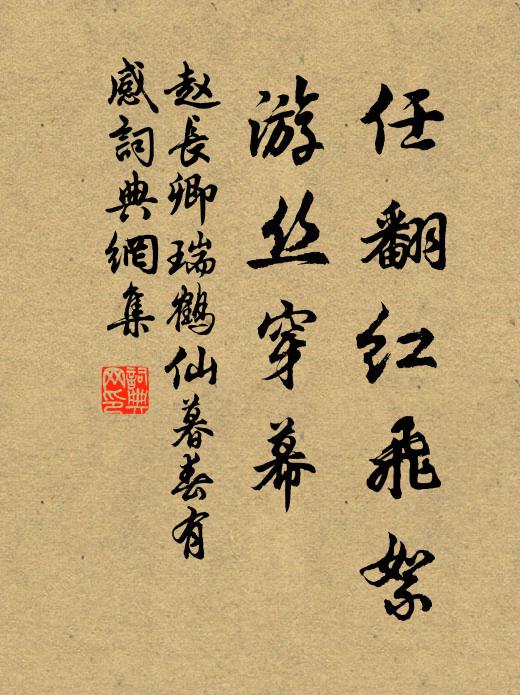 任翻红飛絮
游丝穿幕
赵長卿瑞鶴仙暮春有
感詞典網集
詞典
网印